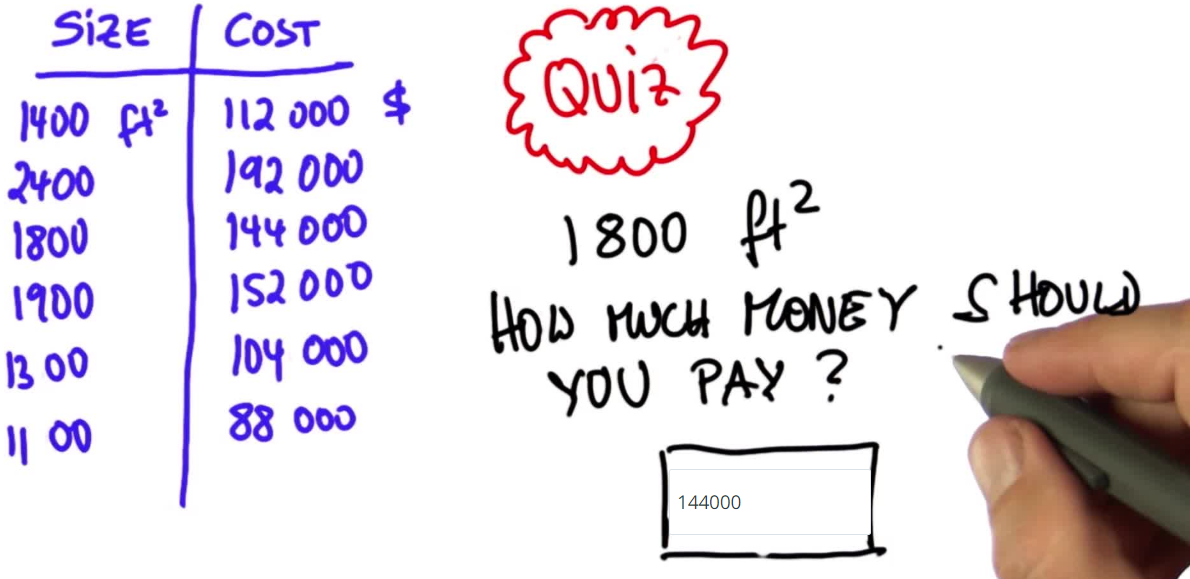 SiZE COST
1400 ft² 112 000 $
2400 192 000
1800 144 000
1900 152 000
1300 104 000
1100 88 000
QUiZ
1800 ft²
HOW MUCH MONEY SHOULD
YOU PAY?
144000